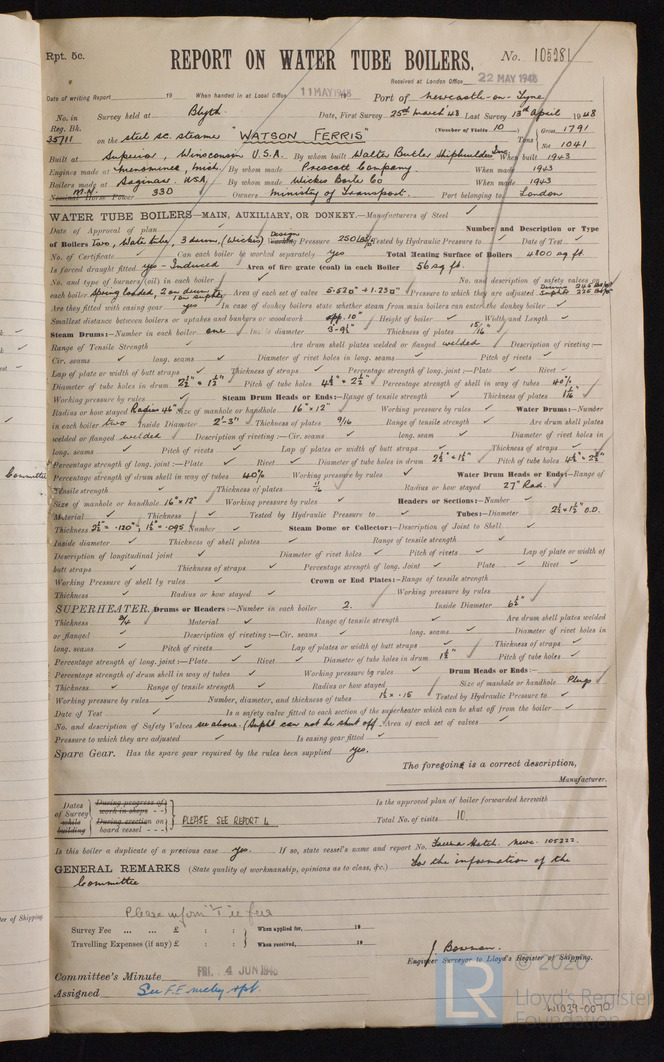 Rpt. 5c.
REPORT ON WATER TUBE BOILERS.
No. 105281
Received at London Office 22 MAY 1948
Date of writing Report 19 When handed in at Local Office 11 MAY 1948 Port of Newcastle-on-Tyne
No. in Survey held at Blyth Date, First Survey 25th March '48 Last Survey 13th April 1948
Reg. Bk. (Number of Visits 10)
35711 on the steel sc. steamer "WATSON FERRIS" Tons Gross 1791 Net 1041
Built at Superior, Winsconsin U.S.A. By whom built Walter Butler Shipbuilders Inc. When built 1943
Engines made at Menominee, Mich. By whom made Prescott Company. When made 1943
Boilers made at Saginaw. USA. By whom made Wickes Boiler Co When made 1943
Nominal Horse Power M.N. 330 Owners Ministry of Transport. Port belonging to London
WATER TUBE BOILERS—MAIN, AUXILIARY, OR DONKEY.—Manufacturers of Steel ✓
Date of Approval of plan Number and Description or Type
of Boilers Two, Water tube, 3 drums, (Wickes) Design Working Pressure 250 lbs/□" Tested by Hydraulic Pressure to ✓ Date of Test ✓
No. of Certificate ✓ Can each boiler be worked separately yes Total Heating Surface of Boilers 4800 sq ft.
Is forced draught fitted yes - Induced Area of fire grate (coal) in each Boiler 56 sq ft.
No. and type of burners (oil) in each boiler ✓ No. and description of safety valves on
each boiler Spring loaded, 2 on drum 1 on suphtr Area of each set of valves 5.520" + 1.230" Pressure to which they are adjusted Drums 245 lbs/□" Suphtr 225 lbs/□"
Are they fitted with easing gear yes In case of donkey boilers state whether steam from main boilers can enter the donkey boiler ✓
Smallest distance between boilers or uptakes and bunkers or woodwork app. 10" Height of boiler ✓ Width and Length ✓
Steam Drums:—Number in each boiler one Inside diameter 3'-9½" Thickness of plates 15/16"
Range of Tensile Strength ✓ Are drum shell plates welded or flanged welded Description of riveting:—
Cir. seams ✓ long. seams ✓ Diameter of rivet holes in long. seams ✓ Pitch of rivets ✓
Lap of plate or width of butt straps ✓ Thickness of straps ✓ Percentage strength of long. joint:—Plate ✓ Rivet ✓
Diameter of tube holes in drum 2½" & 1½" Pitch of tube holes 4½" & 2½" Percentage strength of shell in way of tubes 40%
Working pressure by rules ✓ Steam Drum Heads or Ends:—Range of tensile strength ✓ Thickness of plates 1 1/16"
Radius or how stayed Radius 46" Size of manhole or handhole 16" × 12" Working pressure by rules ✓ Water Drums:—Number
in each boiler two Inside Diameter 2'-3" Thickness of plates 9/16 Range of tensile strength ✓ Are drum shell plates
welded or flanged welded Description of riveting:—Cir. seams ✓ long. seam ✓ Diameter of rivet holes in
long. seams ✓ Pitch of rivets ✓ Lap of plates or width of butt straps ✓ Thickness of straps ✓
Percentage strength of long. joint:—Plate ✓ Rivet ✓ Diameter of tube holes in drum 2½" & 1½" Pitch of tube holes 4½" & 2½"
Percentage strength of drum shell in way of tubes 40% Working pressure by rules ✓ Water Drum Heads or Ends:—Range of
Tensile strength ✓ Thickness of plates 11/16 Radius or how stayed 27" Rad.
Size of manhole or handhole 16" × 12" Working pressure by rules ✓ Headers or Sections:—Number ✓
Material ✓ Thickness ✓ Tested by Hydraulic Pressure to ✓ Tubes:—Diameter 2½ & 1½" O.D.
Thickness 2½" = .120", 1½" = .095 Number ✓ Steam Dome or Collector:—Description of Joint to Shell ✓
Inside diameter ✓ Thickness of shell plates ✓ Range of tensile strength ✓
Description of longitudinal joint ✓ Diameter of rivet holes ✓ Pitch of rivets ✓ Lap of plate or width of
butt straps ✓ Thickness of straps ✓ Percentage strength of long. Joint ✓ Plate ✓ Rivet ✓
Working Pressure of shell by rules ✓ Crown or End Plates:—Range of tensile strength
Thickness ✓ Radius or how stayed ✓ Working pressure by rules ✓
SUPERHEATER. Drums or Headers:—Number in each boiler 2. Inside Diameter 6½"
Thickness 3/4 Material ✓ Range of tensile strength ✓ Are drum shell plates welded
or flanged ✓ Description of riveting:—Cir. seams ✓ long. seams ✓ Diameter of rivet holes in
long. seams ✓ Pitch of rivets ✓ Lap of plates or width of butt straps ✓ Thickness of straps ✓
Percentage strength of long. joint:—Plate ✓ Rivet ✓ Diameter of tube holes in drum 1½" Pitch of tube holes ✓
Percentage strength of drum shell in way of tubes ✓ Working pressure by rules ✓ Drum Heads or Ends:—
Thickness ✓ Range of tensile strength ✓ Radius or how stayed ✓ Size of manhole or handhole Plugs
Working pressure by rules ✓ Number, diameter, and thickness of tubes 1½ × .15 Tested by Hydraulic Pressure to ✓
Date of Test ✓ Is a safety valve fitted to each section of the superheater which can be shut off from the boiler ✓
No. and description of Safety Valves see above. (Supht can not be shut off. Area of each set of valves ✓
Pressure to which they are adjusted ✓ Is easing gear fitted ✓
Spare Gear. Has the spare gear required by the rules been supplied yes.
The foregoing is a correct description,
Manufacturer.
Dates of Survey while building During progress of work in shops - - During erection on board vessel - - - PLEASE SEE REPORT 4 Is the approved plan of boiler forwarded herewith
Total No. of visits 10.
Is this boiler a duplicate of a previous case yes. If so, state vessel's name and report No. Laura Hatch. Nwc. 105222.
GENERAL REMARKS (State quality of workmanship, opinions as to class, &c.) For the information of the
Committee
Please inform
Survey Fee ... ... £ : : When applied for, 19
Travelling Expenses (if any) £ : : When received, 19
J. Bowman.
Engineer Surveyor to Lloyd's Register of Shipping.
Committee's Minute FRI. 4 JUN 1948
Assigned See F.E. mchy rpt.
LR © 2020
Lloyd's Register
Foundation
W1039-0070
Committee
ter of Shipping.